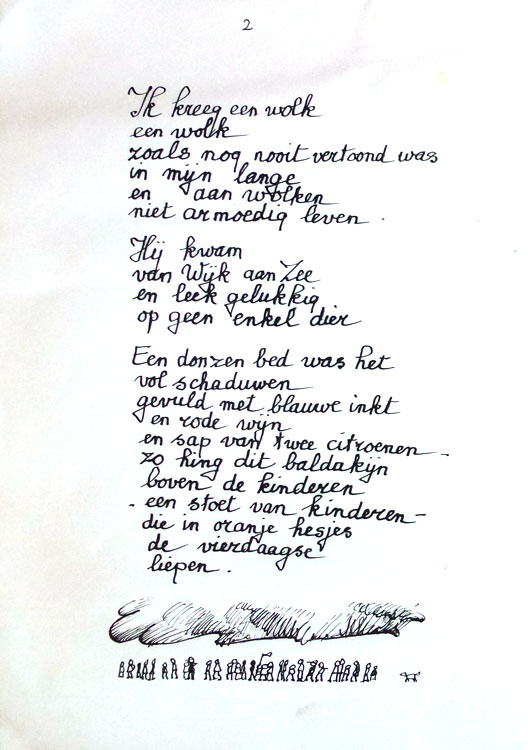 2
Ik kreeg een wolk
een wolk
zoals nog nooit vertoond was
in mijn lange
en aan wolken
niet armoedig leven.
Hij kwam
van Wijk aan Zee
en leek gelukkig
op geen enkel dier
Een donzen bed was het
vol schaduwen
gevuld met blauwe inkt
en rode wijn
en sap van twee citroenen -
zo hing dit baldakijn
boven de kinderen
- een stoet van kinderen -
die in oranje hesjes
de vierdaagse
liepen.